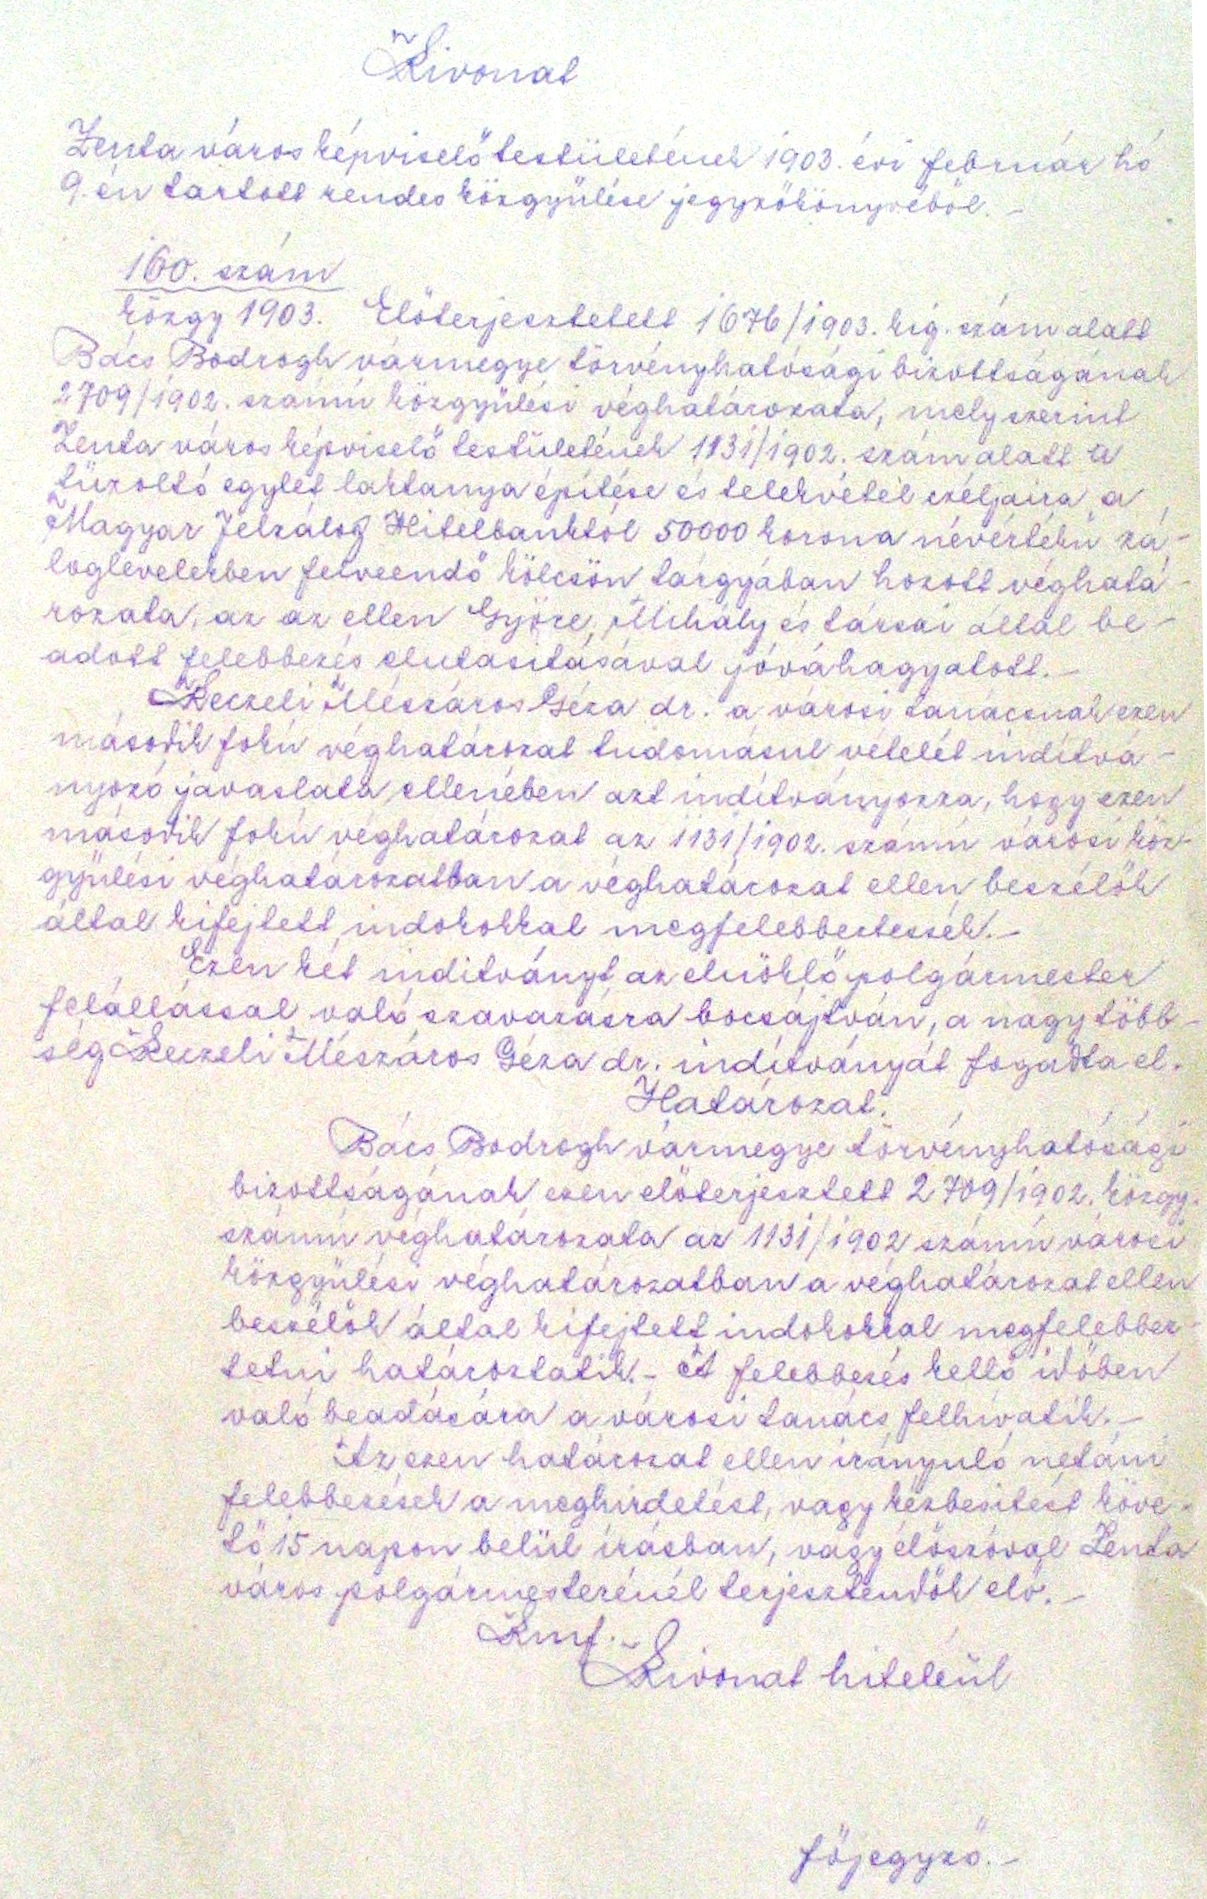 Kivonat
Zenta város képviselő testületének 1903. évi február hó
9.-én tartott rendes közgyűlése jegyzőkönyvéből.-
160. szám
közgy 1903. Előterjesztetett 1676/1903. kig. szám alatt
Bács Bodrogh vármegye törvényhatósági bizottságának
2709/1902. számú közgyűlési véghatározata, mely szerint
Zenta város képviselő testületének 1131/1902. szám alatt a
tűzoltó egylet laktanya építése és telekvétel czéljaira, a
Magyar Jelzálog Hitelbanktól 50000 korona névértékű zá-
loglevelekben felveendő kölcsön tárgyában hozott véghatá-
rozata, az az ellen Győre Mihály és társai által be-
adott felebbezés elutasításával jóváhagyatott.-
Keczeli Mészáros Géza dr. a városi tanácsnak ezen
második fokú véghatározat tudomásul vételét indítvá-
nyozó javaslata ellenében azt indítványozza, hogy ezen
második fokú véghatározat az 1131/1902. számú városi köz-
gyűlési véghatározatban a véghatározat ellen beszélők
által kifejtett indokokkal megfelebbeztessék.-
Ezen két indítványt az elnöklő polgármester
felállással való szavazásra bocsájtván, a nagy több-
ség Keczeli Mészáros Géza dr. indítványát fogadta el.
Határozat.
Bács Bodrogh vármegye törvényhatósági
bizottságának ezen előterjesztett 2709/1902. közgy.
számú véghatározata az 1131/1902 számú városi
közgyűlési véghatározatban a véghatározat ellen
beszélők által kifejtett indokokkal megfelebbez-
tetni határoztatik.- A felebbezés kellő időben
való beadására a városi tanács felhívatik.-
Az ezen határozat ellen irányuló netáni
felebbezések a meghirdetést, vagy kézbesítést köve-
tő 15 napon belül írásban, vagy élőszóval Zenta
város polgármesterénél terjesztendők elő.-
Kmf.
Kivonat hiteléül
főjegyző.-